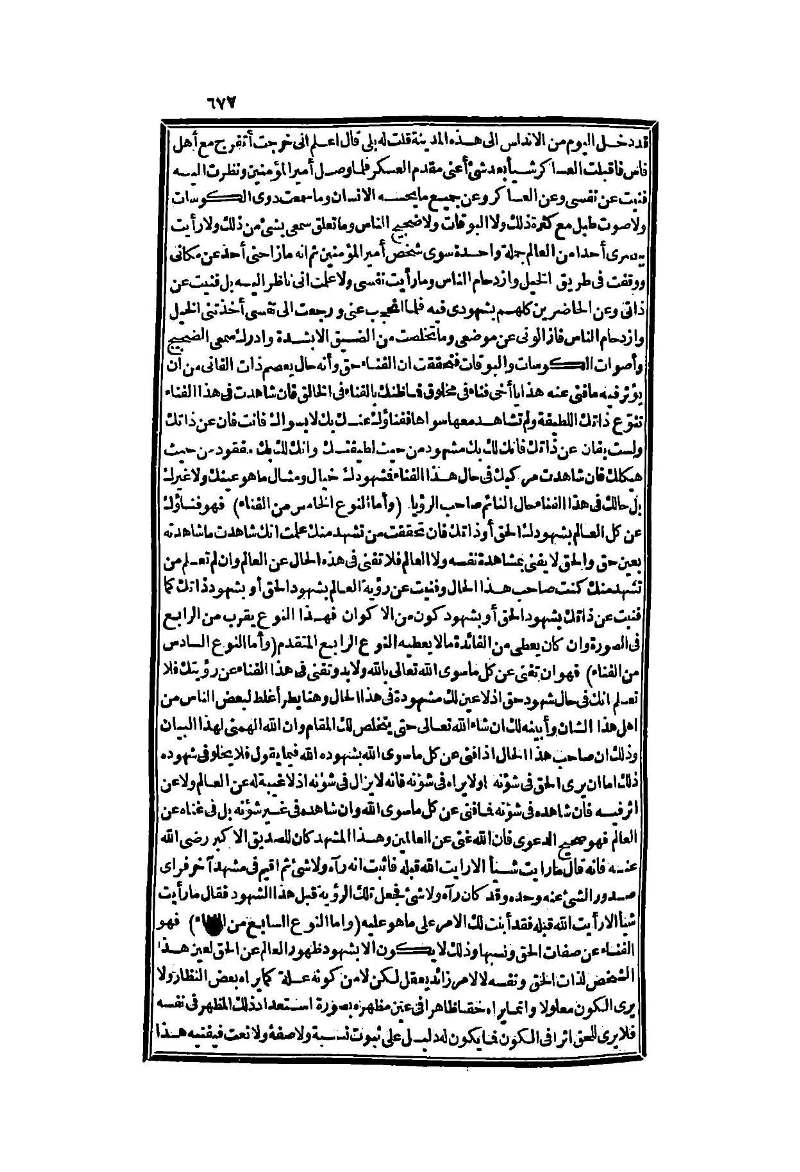 ٦٧٧
قد دخل اليوم من الاندلس الى هذه المدينة قلت له بلى قال اعلم انى خرجت أتفرج مع أهل
فاس فاقبلت العساكر شيأ بعد شئ أعنى مقدم العسكر فلما وصل أمير المؤمنين ونظرت اليه
فنيت عن نفسى وعن العساكر وعن جميع ما يحسه الانسان وما سمعت دوى الكوسات
ولا صوت طبل مع كثرة ذلك ولا البوقات ولا ضجيج الناس وما تعلق سمعى بشئ من ذلك ولا رأيت
ببصرى أحدا من العالم جملة واحدة سوى شخص أمير المؤمنين ثم انه ما زاحنى أحد عن مكانى
ووقفت فى طريق الخيل وازدحام الناس وما رأيت نفسى ولا علمت انى ناظر اليه بل فنيت عن
ذاتى وعن الحاضرين كلهم بشهودى فيه فلما انحجب عنى ورجعت الى نفسى أخذتنى الخيل
وازدحام الناس فازالونى عن موضعى وما تخلصت من الضيق الا بشدة وادرك سمعى الضجيج
وأصوات الكوسات والبوقات فتحققت ان الفناء حق وأنه حال يعصم ذات الفانى من ان
يؤثر فيه ما فنى عنه هذا يا أخى فناء فى مخلوق فما ظنك بالفناء فى الخالق فان شاهدت فى هذا الفناء
تنوع ذاتك اللطيفة ولم تشاهد معها سواها ففناؤك عنك بك لا بسواك فانت فان عن ذاتك
ولست بفان عن ذاتك فانك لك بك مشهود من حيث لطيفتك وانك لك بك مفقود من حيث
هيكلك فان شاهدت مركبك فى حال هذا الفناء فشهودك خيال ومثال ما هو عينك ولا غيرك
بل حالك فى هذا الفناء حال النائم صاحب الرؤيا. (وأما النوع الخامس من الفناء) فهو فناؤك
عن كل العالم بشهودك الحق أو ذاتك فان تحققت من تشهد منك علمت انك شاهدت ما شاهدته
بعين حق والحق لا يفنى بمشاهدة نفسه ولا العالم فلا تفنى فى هذه الحال عن العالم وان لم تعلم من
تشهد منك كنت صاحب هذا الحال وفنيت عن رؤية العالم بشهود الحق أو بشهود ذاتك كما
فنيت عن ذاتك بشهود الحق أو بشهود كون من الاكوان فهذا النوع يقرب من الرابع
فى الصورة وان كان يعطى من الفائدة ما لا يعطيه النوع الرابع المتقدم (وأما النوع السادس
من الفناء) فهو ان تفنى عن كل ما سوى الله تعالى بالله ولا بد وتفنى فى هذا الفناء عن رؤيتك فلا
تعلم انك فى حال شهود حق اذ لا عين لك مشهودة فى هذا الحال وهنا يطرأ غلط لبعض الناس من
اهل هذا الشان وأبينه لك ان شاء الله تعالى حتى يتخلص لك المقام وان الله الهمنى لهذا البيان
وذلك ان صاحب هذا الحال اذا فنى عن كل ما سوى الله بشهوده الله فيما يقول فلا يخلو فى شهوده
ذلك اما ان يرى الحق فى شؤنه اولا يراه فى شؤنه فانه لا يزال فى شؤنه اذ لا غيبة له عن العالم ولا عن
اثر فيه فان شاهده فى شؤنه فما فنى عن كل ما سوى الله وان شاهده فى غير شؤنه بل فى غناه عن
العالم فهو صحيح الدعوى فان الله غنى عن العالمين وهذا المشهد كان للصديق الاكبر رضى الله
عنه فانه قال ما رايت شيأ الا رايت الله قبله فاثبت انه رآه ولا شئ ثم اقيم فى مشهد آخر فرأى
صدور الشئ عنه وحده وقد كان رآه ولا شئ فجعل تلك الرؤية قبل هذا الشهود فقال ما رأيت
شيأ الا رأيت الله قبله فقد أبنت لك الامر على ما هو عليه (واما النوع السابع من الفناء) فهو
الفناء عن صفات الحق ونسبها وذلك لا يكون الا بشهود ظهور العالم عن الحق لعين هذا
الشخص لذات الحق ونفسه لا لامر زائد يعقل لكن لا من كونه علة كما يراه بعض النظار ولا
يرى الكون معلولا وانما يراه حقا ظاهرا فى عين مظهره بصورة استعداد ذلك المظهر فى نفسه
فلا يرى للحق اثرا فى الكون فما يكون له دليل على ثبوت نسبة ولا صفة ولا نعت فيفنيه هذا